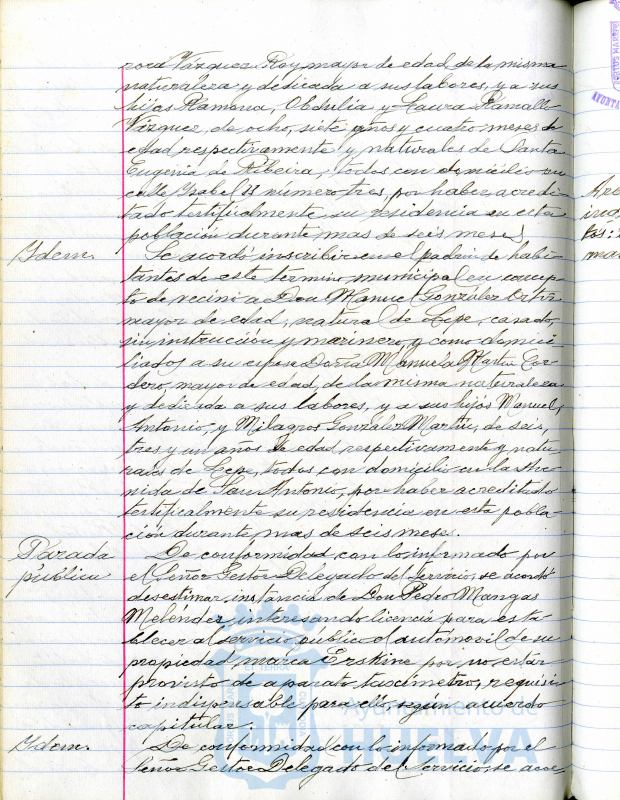 Vázquez Roy mayor de edad, de la misma
naturaleza y dedicada a sus labores, y a sus
hijos Ramona, Obdulia y Laura Ramallo
Vázquez, de ocho, siete años y cuatro meses de
edad respectivamente y naturales de Santa
Eugenia de Ribeira, todos con domicilio en
calle Ysabel II número tres, por haber acredi-
tado testifcalmente su residencia en esta
población durante mas de seis meses.
Ydem.
Se acordó inscribir en el padrón de habi-
tantes de este termino municipal en concep-
to de vecino a Don Manuel González Ortiz
mayor de edad, natural de Lepe, casado,
sin instrucción y marinero, y como domici-
liados a su esposa Doña Manuela Martin Cor-
dero, mayor de edad, de la misma naturaleza
y dedicada a sus labores, y a sus hijos Manuel,
Antonio, y Milagros González Martin, de seis,
tres y un años de edad respectivamente y natu-
rales de Lepe, todos con domicilio en la Ave-
nida de San Antonio, por haber acreditado
testificalmente su residencia en esta pobla-
ción durante mas de seis meses.
Parada
pública
De conformidad con lo informado por
el Señor Gestor Delegado del Servicio, se acordó
desestimar instancia de Don Pedro Mangas
Meléndez interesando licencia para esta-
blecer al servicio público el automovil de su
propiedad, marca Erskine por no estar
provisto de aparato taxímetro, requisi-
to indispensable para ello, según acuerdo
capitular.
Ydem.
De conformidad con lo informado por el
Señor Gestor Delegado del Servicio, se acor
Ayuntamiento de
HUELVA